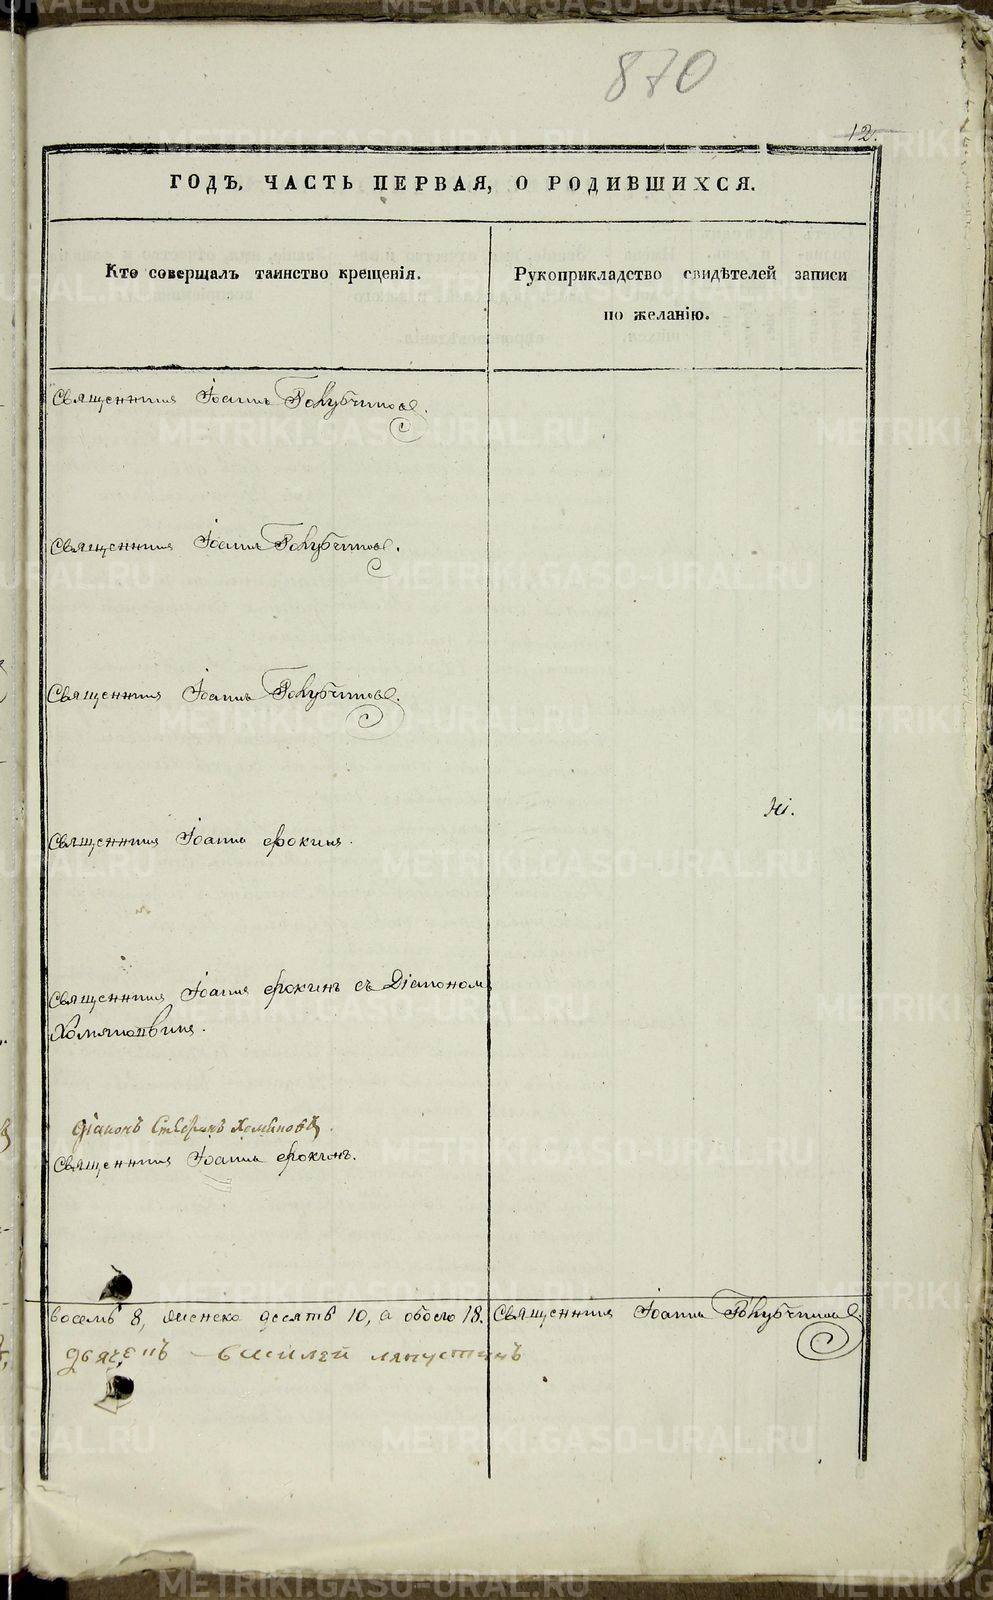 870
12.
ГОДЪ, ЧАСТЬ ПЕРВАЯ, О РОДИВШИХСЯ.
Кто совершалъ таинство крещенія.
Рукоприкладство свидѣтелей записи
по желанію.
Священникъ Іоаннъ Голубчиковъ.
Священникъ Іоаннъ Голубчиковъ.
Священникъ Іоаннъ Голубчиковъ.
Священникъ Іоаннъ Фокинъ.
Священникъ Іоаннъ Фокинъ съ Діакономъ
Діаконъ Стефанъ
Священникъ Іоаннъ Фокинъ.
восемь 8, женска десять 10, а обоего 18. Священникъ Іоаннъ Голубчиковъ.
METRIKI.GASO-URAL.RU